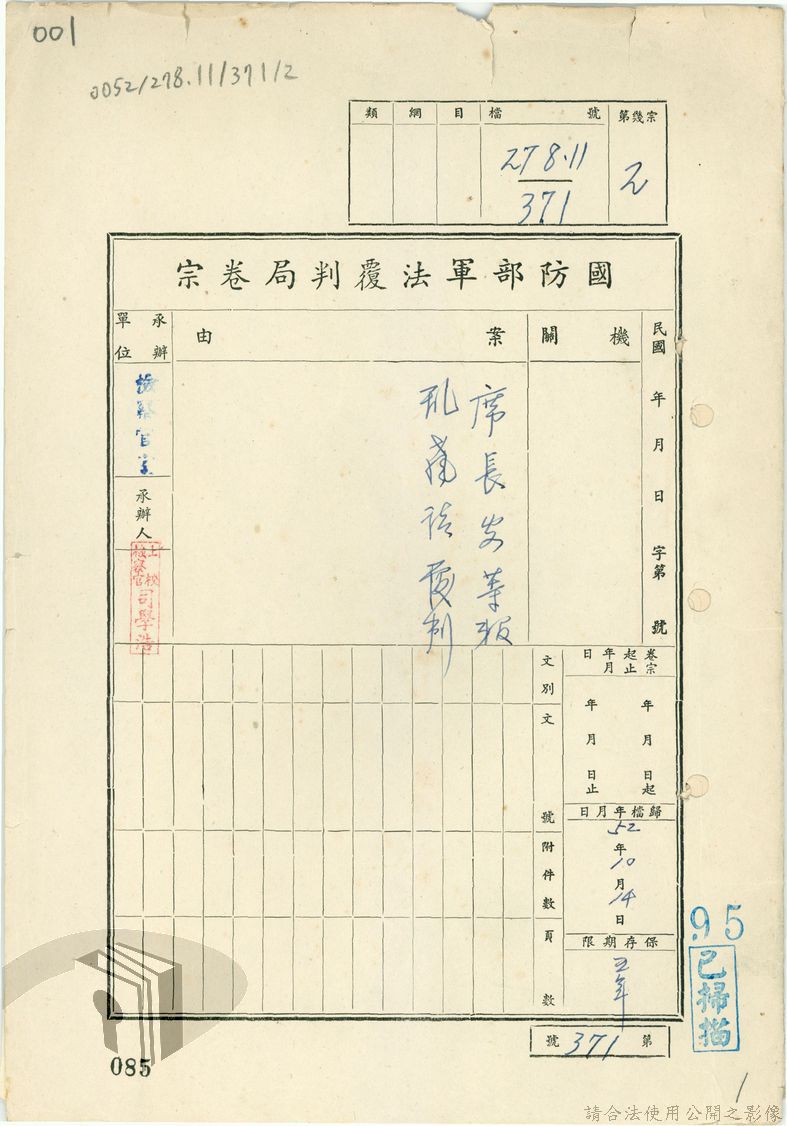 001
0052/278.11/371/2
類 綱 目 檔號 第幾宗
278.11
371
2
國防部軍法覆判局卷宗
民國 年 月 日 字第 號
機關
案由
席長安等叛
亂案
覆判
承辦單位
檢察官室
承辦人
上校
檢察官
司學浩
卷宗起止年月日
年 月 日起
年 月 日止
歸檔年月日
52年10月14日
保存期限
五年
文別
文號
附件數
頁數
第371號
95
已掃描
085
1
請合法使用公開之影像